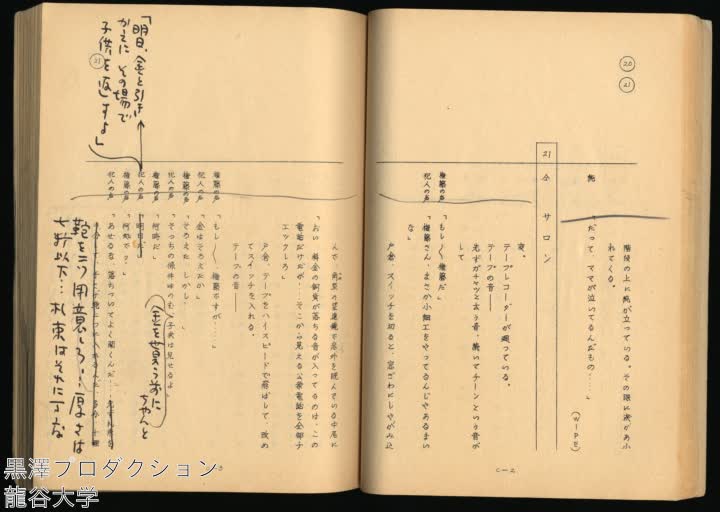 ⑳
㉑
階段の上に純が立っている。その眼に涙があふ
れてくる。
純
「だって、ママが泣いてるんだもの……」
(WIPE)
21 仝 サロン
夜。
テープレコーダーが廻っている。
テープの音——
先ずガチャッと云う音、続いてチーンという音が
して
権藤の声「もし〳〵権藤だ」
犯人の声「権藤さん、まさか小細工をやってるんじゃあるまい
な」
戸倉、スイッチを切ると、窓ぎわにしゃがみ込
C—2
んで、
「おい、料金の銅貨が落ちる音が入ってるのは、この
電話だけだが……そこから見える公衆電話を全部チ
エックしろ」
戸倉、テープをハイスピードで飛ばして、改め
てスイッチを入れる。
テープの音——
権藤の声「もし〳〵権藤ですが……」
犯人の声「金はそろえたか」
権藤の声「そろえた、しかし…」
犯人の声「そっちの条件はのむ、子供は見せるよ」
金を貰う前にちゃんと
権藤の声「何時だ」
犯人の声「明日だ」
「明日、金と引き
かえに その場で
子供を返すよ」
㉑
権藤の声「何処で?」
犯人の声「あせるな、落ちついてよく聞くんだ……
鞄を二つ用意しろ…厚さは
七糎以下…札束はそれに丁度
黒澤プロダクション
龍谷大学